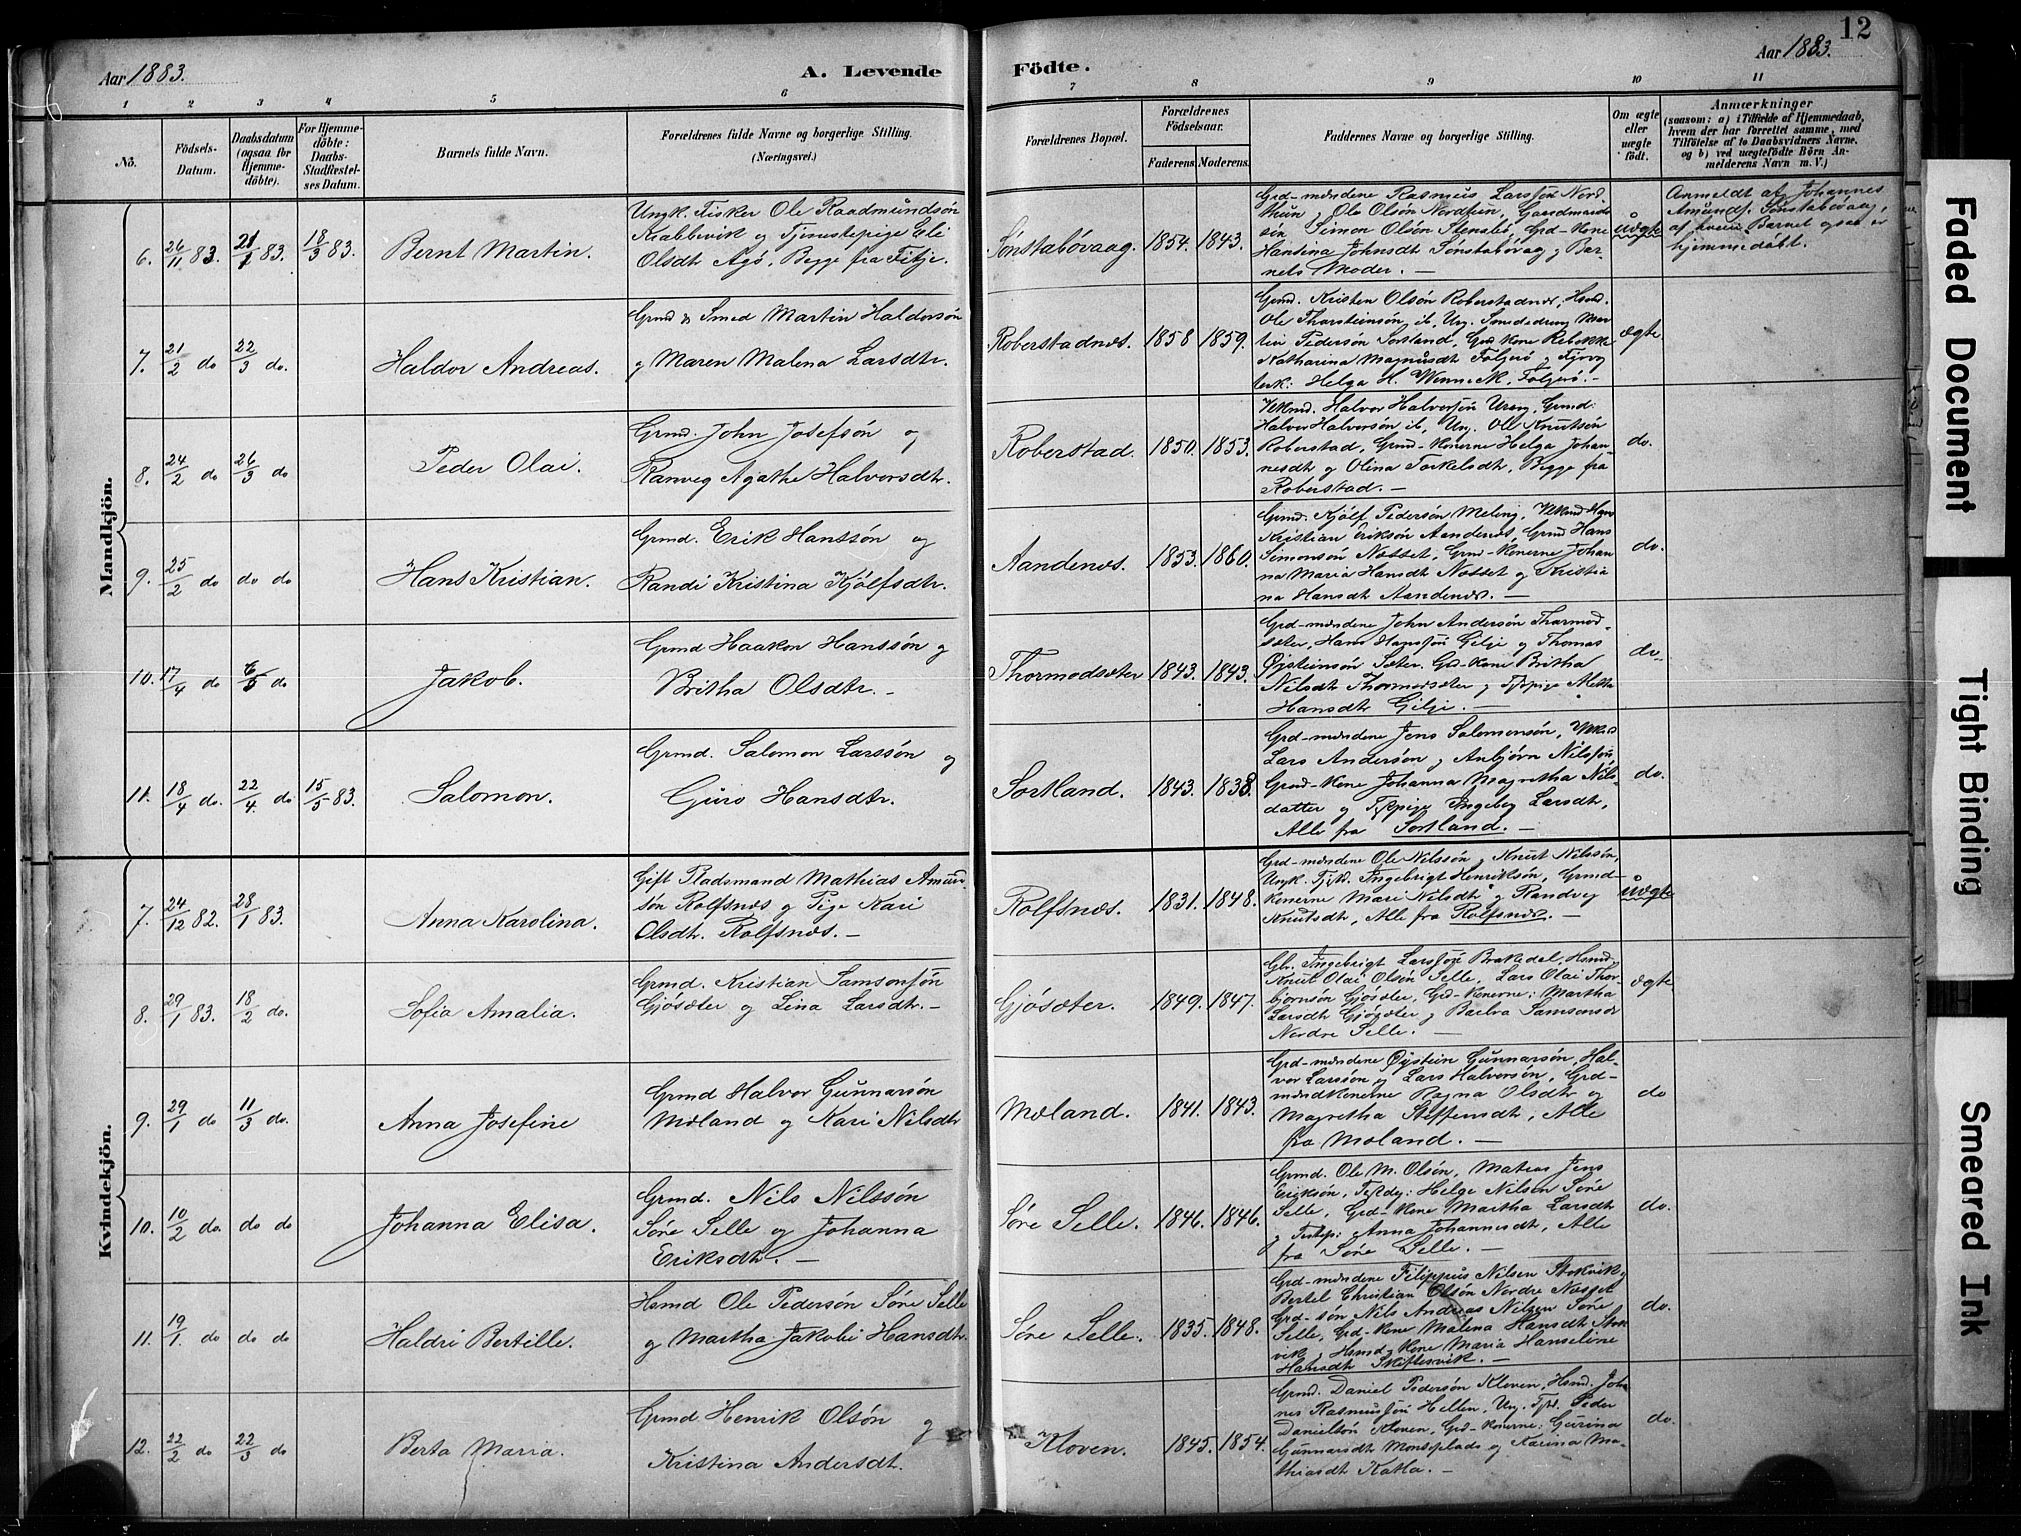 12
Aar 1883.
A. Levende Födte.
Aar 1883.
1 2 3 4 5 6 7 8 9 10 11
No.
Födsels-
Datum.
Daabsdatum
(ogsaa for
Hjemme-
döbte).
For Hjemme-
döbte:
Daabs-
Stadfæstel-
ses Datum.
Barnets fulde Navn.
Forældrenes fulde Navne og borgerlige Stilling.
(Næringsvei.)
Forældrenes Bopæl.
Forældrenes
Födselsaar.
Faderens. Moderens.
Faddernes Navne og borgerlige Stilling.
Om ægte
eller
uægte
födt.
Anmærkninger
(saasom: a) i Tilfælde af Hjemmedaab,
hvem der har forrettet samme, med
Tilföielse af to Daabsvidners Navne,
og b) ved uægtefödte Börn An-
melderens Navn m. V.)
Mandkjön.
6. 26/11 83. 21/1 83. 18/3 83. Bernt Martin.
Ungk. Fisker Ole Raadmundsön
Krabbevik og Tjenestepige Eli
Olsdt Agö, Begge fra Fitje.
Sönstabövaag. 1854. 1843.
Grd-mændene Rasmus Larssön Nord-
thun, Ole Olsön Nordtun, Gaardmands
sön Simon Olsön Stensbö, Grd-Kone
Hansina Johnsdt Sönstabövag og Bar-
nets Moder. —
uægte
Anmeldt af Johannes
Amunds. Sönstabövaag,
af hvem Barnet ogsaa er
hjemmedöbt.
7. 21/2 do 22/3 do. Haldor Andreas.
Grmd & Smed Martin Haldorsön
og Maren Malena Larsdtr.
Roberstadnes. 1858 1859.
Grmd. Kristen Olsön Roberstadnes, Hsmd.
Ole Tharsteinsön ib, Ung. Smededreng Mar-
tin Pedersön Sortland, Grd Kone Rebekka
Natharina Magnusdt Folgerö og
Helga H. Wenneck, Folgerö. —
ægte
8. 24/2 do 26/3 do Peder Olai.
Grmd. John Josefsön og
Ranveg Agathe Halvorsdtr.
Roberstad. 1850. 1853.
Halvor Halvorsön Urang, Grmd:
Halvor Halvorsön ib, Ung. Ole Knutsön
Roberstad, Grmd-Konerne Helga Johan-
nesdt og Olina Torkelsdt, Begge fra
Roberstad. —
do.
9. 25/2 do do do Hans Kristian.
Grmd. Erik Hanssön og
Randi Kristina Kjölfsdtr.
Aandenes. 1853. 1860.
Grmd. Kjölf Pedersön Meling,
Kristian Eriksön Aandenes, Grmd Hans
Simonsön Næsset, Grmd-Konerne Johan
na Maria Hansdt Næsset og Kristia
na Hansdt Aandenes. —
do.
10. 17/4 do 6/5 do Jakob.
Grmd Haakon Hanssön og
Britha Olsdtr. —
Thormodsæter 1843. 1843.
Grd-mændene John Andersön Tharmod-
sæter, Hans Hanssön Gilje og Thomas
Öysteinsön Sæter. Grd-Kone Britha
Nilsdt Thormodsæter og Metta
Hansdt Gilje. —
do.
11. 18/4 do. 22/4. do 15/5 83. Salomon.
Grmd. Salomon Larssön og
Guro Hansdtr.
Sortland. 1843. 1838.
Grd-mændene Jens Salomonsön,
Lars Andersön og Anbjörn Nilssön
Grmd-Kone Johanna Magretha Nils-
datter og Ingebor Larsdt,
Alle fra Sortland. —
do.
Kvindekjön.
7. 24/12 82. 28/1 83. Anna Karolina.
Gift Pladsmand Mathias Amund
sön Rolfsnæs og Pige Kari
Olsdtr. Rolfsnæs. —
Rolfsnæs. 1831. 1848.
Grd-mændene Ole Nilssön og Knut Nilssön,
Ungk. Ingebrigt Henriksön, Grmd-
Konerne Mari Nilsdt og Randveg
Knutsdt, Alle fra Rolfsnæs. —
uægte
8. 29/1 83. 18/2 do. Sofia Amalia.
Grmd. Kristian Samsonsön
Gjösæter og Lina Larsdtr. —
Gjösæter. 1849. 1847.
Gbr. Ingebrigt Larssön Brakedal, Hsmd.
Knut Olai Olsön Selle, Lars Olai Thor-
björnsön Gjösæter, Grd-Konerne: Martha
Larsdt Gjösæter og Barbra Samsonsdt
Nordre Selle. —
ægte
9. 29/1 do 11/3 do. Anna Josefine
Grmd Halvor Gunnarsön
Mæland og Kari Nilsdtr
Mæland. 1841. 1843.
Grd-mændene Öystein Gunnarsön, Hal-
vor Larssön og Lars Halvorsön, Grd-
mandKonerne Ragna Olsdtr og
Magretha Steffensdt, Alle
fra Mæland. —
do
10. 10/2 do. do do Johanna Elisa.
Grmd. Nils Nilssön
Söre Selle og Johanna
Eriksdtr. —
Söre Selle. 1846. 1846.
Grmd. Ole M. Olsön, Matias Jens
Eriksön, Helge Nilsen Söre
Selle, Grd-Kone Martha Larsdt
og Anna Johannesdt, Alle
fra Söre Selle. —
do.
11. 19/1. do do do Haldri Bertille.
Hsmd Ole Pedersön Söre Selle
og Martha Jakobi Hansdtr.
Söre Selle. 1835. 1848.
Grd-mændene Filippus Nilsen Stokvik og
Bertel Christian Olsön Nordre Næsset
Grd-sön Nils Andreas Nilsen Söre
Selle, Grd-Kone Malena Hansdt Stok
vik og Hsmd-Kone Maria Hanseline
Hansdt Skiftesvik. —
do.
12. 22/2 do 22/3 do Berta Maria.
Grmd. Henrik Olsön og
Kristina Andersdt.
Kloven. 1845. 1854.
Grmd. Daniel Pedersön Kloven, Hsmd. Joha
nes Rasmussön Hellen, Ung. Peder
Danielsön Kloven, Grd-Konerne: Gurina
Gunnarsdt Monsplads og Karina Ma-
thiasdt Katla. —
do.
Faded Document
Tight Binding
Smeared Ink